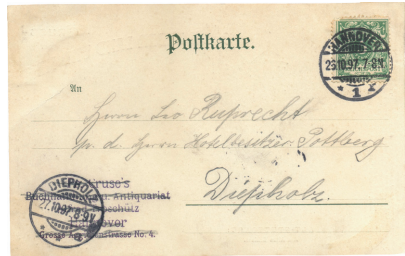 Postkarte.
HANNOVER
26.10.97. 7-8N
* 1 *
An
Herrn Leo Ruprecht
p. d. Herrn Hotelbesitzer Pottberg
Diepholz.
DIEPHOLZ
27.10.97. 8-9V.
Kruse's
Buchhandlung u. Antiquariat
Hannover
Grosse Aegidienstrasse No. 4.